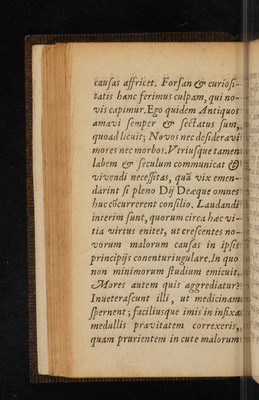 causas affricet. Forsan & curiosi-
tatis hanc ferimus culpam, qui no-
vis capimur. Ego quidem Antiquos
amavi semper & sectatus sum,
quoad licuit; Novos nec desideravi
mores nec morbos. Vtriusque tamen
labem & seculum communicat &
vivendi necessitas, quã vix emen-
darint si pleno Dij Deæque omnes
huc cõcurrerent consilio. Laudandi
interim sunt, quorum circa hæc vi-
tia virtus enitet, ut crescentes no-
vorum malorum causas in ipsis
principijs conentur iugulare. In quo
non minimorum studium emicuit.
Mores autem quis aggrediatur?
Inveterascunt illi, ut medicinam
spernent; faciliusque imis in infixa
medullis pravitatem correxeris,
quam prurientem in cute malorum